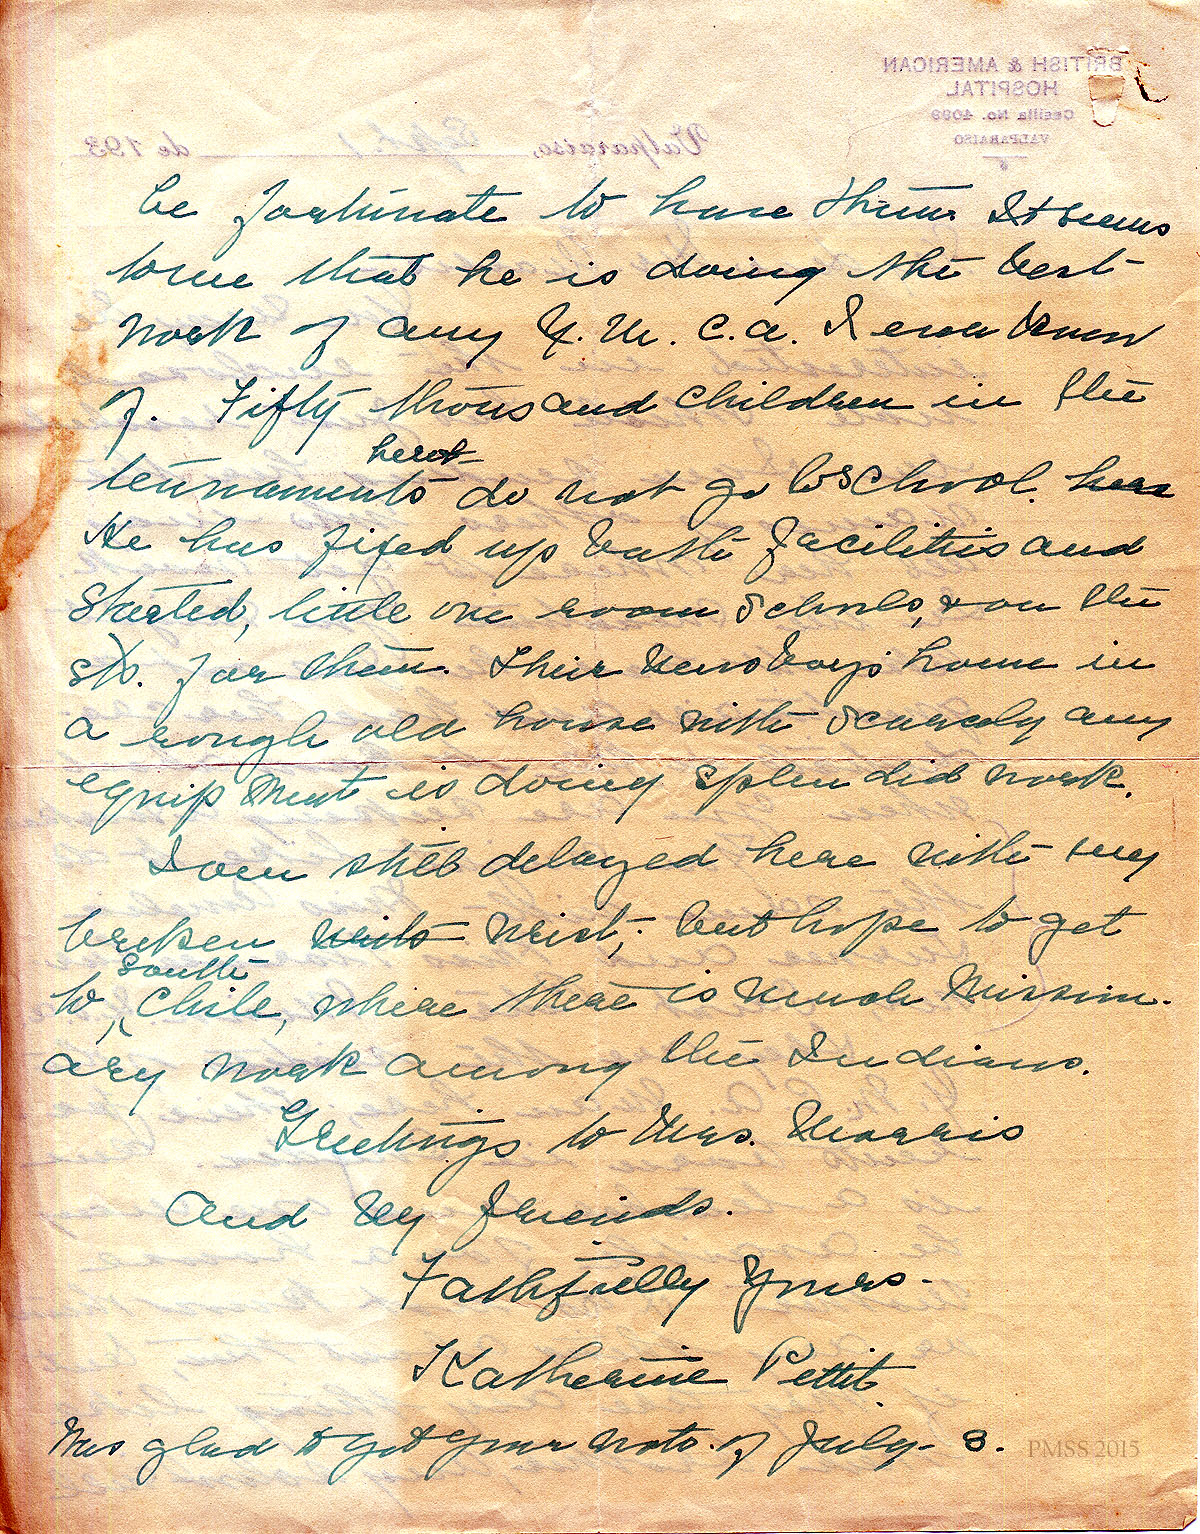 BRITISH & AMERICAN
HOSPITAL
Casilla No. 4099
VALPARAISO
Valparaiso, Sept. 1 de 193
be fortunate to have them It seems
to me that he is doing the best
work of any Y. M. C. A. I ever knew
of. Fifty thousand children in the
here
tennaments do not go to school. here
He has fixed up bath facilities and
started, little one room schools, on the
for them. Their Newsboys home in
a rough old house with scarcely any
equipment is doing splendid work.
I am still delayed here with my
broken wrist; but hope to get
south
to Chile, where there is much Mission-
ary work among the Indians.
Greetings to Mrs. Morris
and my friends.
Faithfully yours.
Katherine Pettit
Was glad to get your note of July 8.
PMSS 2015